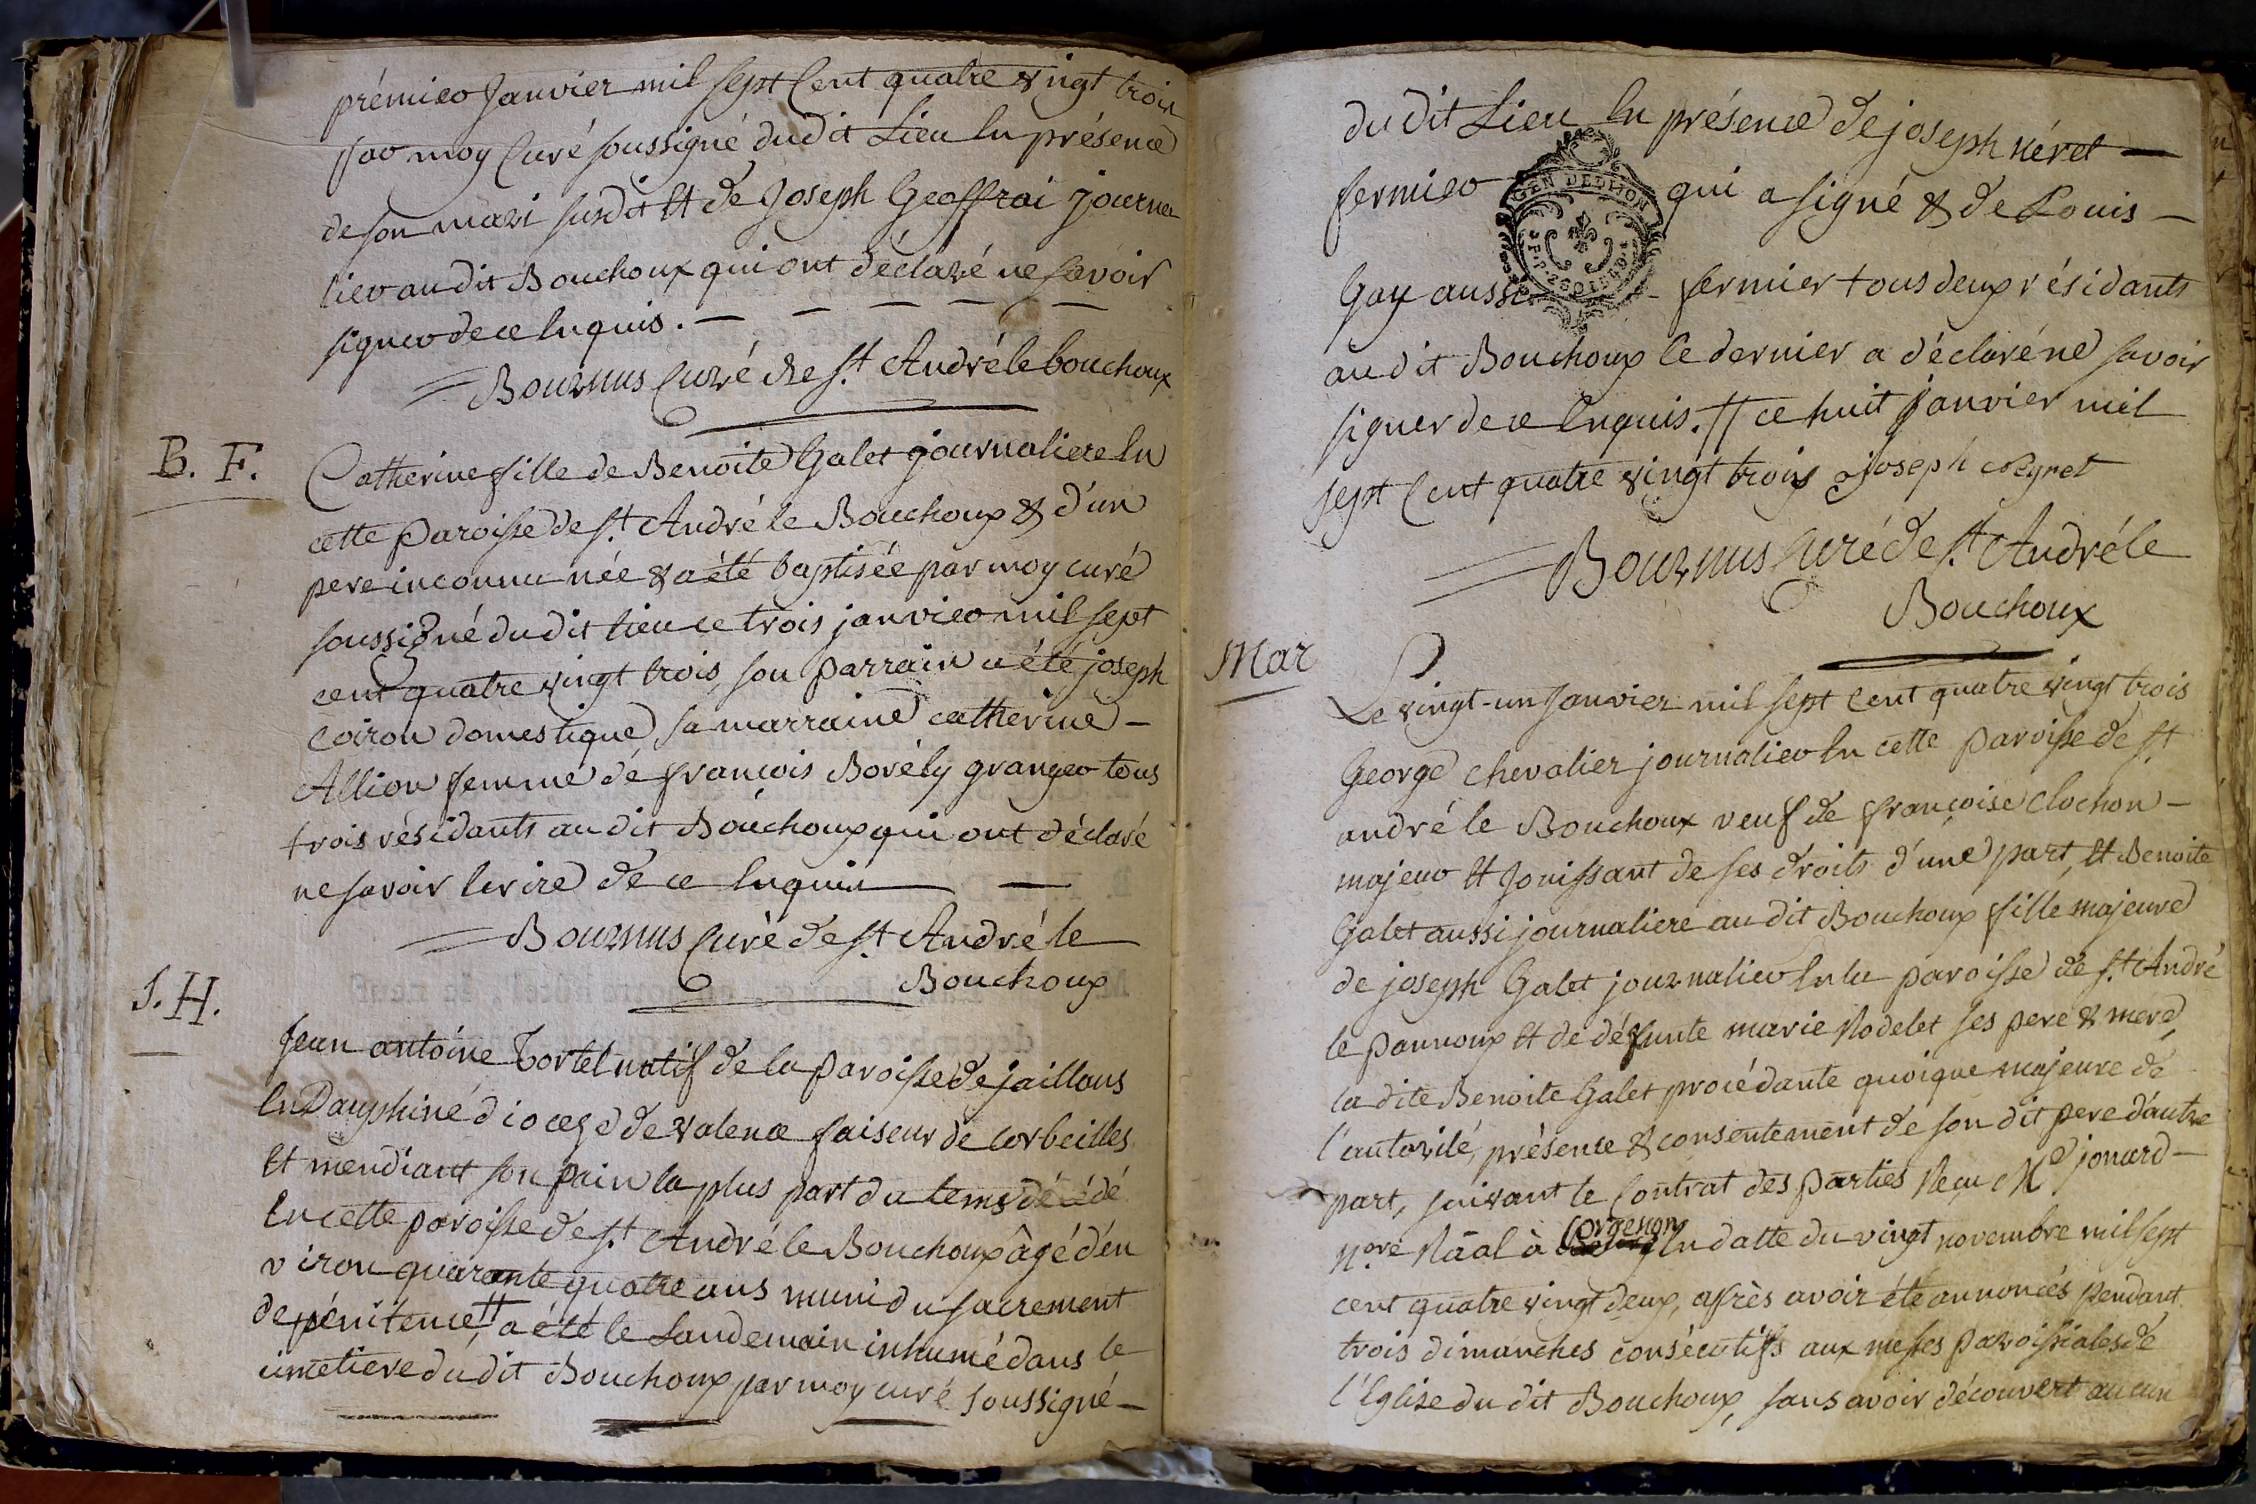 prémier Janvier mil sept Cent quatre vingt trois
par moy Curé soussigné dudit Lieu En présence
de son mari susdit Et de Joseph Geoffrai journa
lier audit Bouchoux qui ont déclaré ne savoir
signer de ce Enquis. —
Bournus Curé de St André le bouchoux
B. F.
Catherine fille de Benoite Galet journaliere En
cette paroisse de St André le Bouchoux & d'un
pere inconnu née & a été baptisée par moy curé
soussigné du dit lieu ce trois janvier mil sept
cent quatre vingt trois, son parrain a été joseph
Coiron domestique, sa marraine catherine —
Allion femme de françois Borély granger tous
trois résidants au dit Bouchoux qui ont déclaré
ne savoir Ecrire de ce Enquis —
Bournus Curé de St André le
Bouchoux
S. H.
Jean antoine Tortel natif de la paroisse de jaillans
En Dauphiné diocese de valence faiseur de Corbeilles
Et mendiant son pain la plus part du tems décédé
En cette paroisse de St André le Bouchoux âgé d'en
viron quarante quatre ans muni du sacrement
de pénitence, a été le Landemain inhumé dans le
cimetiere du dit Bouchoux par moy curé soussigné —
du dit Lieu En présence de joseph néret —
fermier qui a signé & de Louis —
GEN DE DIJON
Gay aussi fermier tous deux résidants
au dit Bouchoux le dernier a déclaré ne savoir
signer de ce Enquis. // ce huit janvier mil
sept Cent quatre vingt trois joseph Neyret
Bournus Curé de St André le
Bouchoux
Mar
Le vingt-un Janvier mil sept Cent quatre vingt trois
George chevalier journalier En cette paroisse de St
andré le Bouchoux veuf de françoise Clochon —
majeur Et Jouissant de ses droits d'une part, Et Benoite
Galet aussi journaliere au dit Bouchoux fille majeure
de joseph Galet journalier En la paroisse de St André
le pannoux Et de défunte marie Rodelet ses pere & mere,
la dite Benoite Galet procédante quoique majeure de
l'autorité, présence & consentement de son dit pere d'autre
part, suivant le Contrat des parties Reçu Me jonard —
nore Räal à Corgenon En datte du vingt novembre mil sept
cent quatre vingt deux, après avoir été annoncés pendant
trois dimanches consécutifs aux messes paroissiales de
l'Eglise du dit Bouchoux, sans avoir découvert aucun